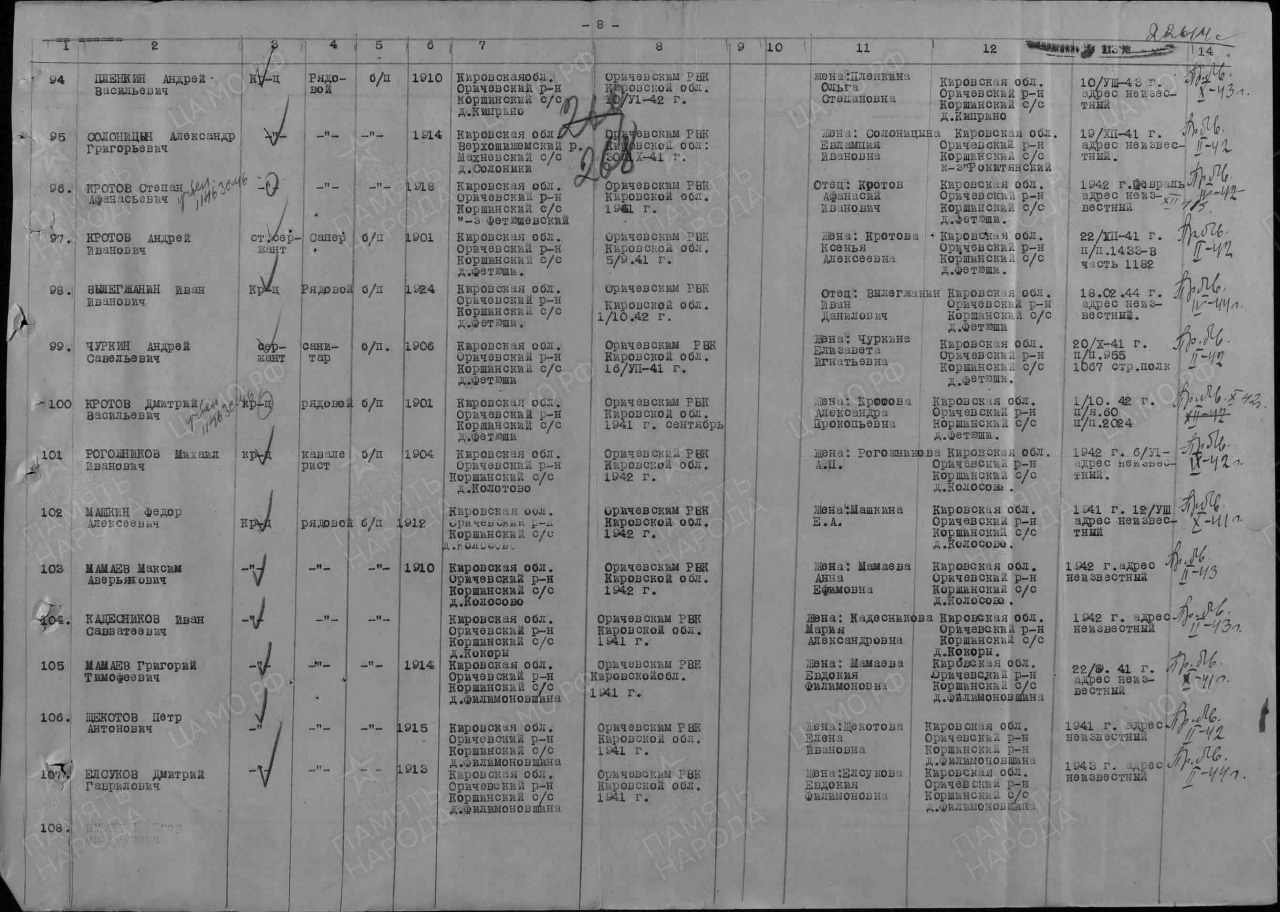 - 8 -
1 2 3 4 5 6 7 8 9 10 11 12 13 14
94 ПЛЕНКИН Андрей Кр-ц Рядо- б/п 1910 Кировскаяобл. Оричевским РВК Жена:Пленкина Кировская обл. 10/УШ-43 г. Пр.б/в.
Васильевич вой Оричевский р-н Кировской обл. Ольга Оричевский р-н адрес неизвес- X-43 г.
Коршинский с/с 10/У1-42 г. Степановна Коршинский с/с тный
д.Киприно д.Киприно
268
95 СОЛОНИЦЫН Александр -"- -"- -"- 1914 Кировская обл. Оричевским РВК Жена: Солоницына Кировская обл. 19/ХП-41 г. Пр.б/в.
Григорьевич Верхошижемский р. Кировской обл: Евлампия Оричевский р-н адрес неизвес- II-42
Махневский с/с Ивановна Коршинский с/с тный.
д.Солоники к-з"Рокитянский
268
96. КРОТОВ Степан -"- -"- 1918 Кировская обл. Оричевским РВК Отец: Кротов Кировская обл. 1942 г.февраль Пр.б/в.
Афанасьевич Оричевский р-н Кировской обл. Афанасий Оричевский р-н адрес неиз-
Коршинский с/с 1941 г. Иванович Коршинский с/с вестный
"-з Фетюшевский д.Фетюши.
97. КРОТОВ Андрей ст.сер- Сапер б/п 1901 Кировская обл. Оричевским РВК Жена: Кротова Кировская обл. 22/ХП-41 г. Пр.б/в.
Иванович жант Оричевский р-н Кировской обл. Ксенья Оричевский р-н п/п.1433-в II-42
Коршинский с/с 5/9.41 г. Алексеевна Коршинский с/с часть 1182
д.Фетюши. д.Фетюши.
98. ВЫЛЕГЖАНИН Иван Кр-ц Рядовой б/п 1924 Кировская обл. Оричевским РВК Отец: Вылегжанин Кировская обл. 18.02.44 г. Пр.б/в.
Иванович Оричевский р-н Кировской обл. Иван Оричевский р-н адрес неиз- IV-44г.
Коршинский с/с 1/10.42 г. Данилович Коршинский с/с вестный.
д.Фетюши. д.Фетюши
99. ЧУРКИН Андрей сер- сани- б/п. 1906 Кировская обл. Оричевским РВК Жена: Чуркина Кировская обл. 20/X-41 г. Пр.б/в.
Савельевич жант тар Оричевский р-н Кировской обл. Елизавета Оричевский р-н п/п.955 II-42
Коршинский с/с 16/УП-41 г. Игнатьевна Коршинский с/с 1067 стр.полк
д.Фетюши д.Фетюши.
100 КРОТОВ Дмитрий кр-ц рядовой б/п 1901 Кировская обл. Оричевским РВК Жена: Кротова Кировская обл. 1/10. 42 г. Пр.б/в. X-42г.
Васильевич Оричевский р-н Кировской обл. Александра Оричевский р-н п/я.60 XII-42
Коршинский с/с 1941 г. сентябрь Прокопьевна Коршинский с/с п/п.2024
д.Фетюши д.Фетюши.
101 РОГОЖНИКОВ Михаил кр-ц кавале б/п 1904 Кировская обл. Оричевский РВК Жена: Рогожникова Кировская обл. 1942 г. 6/У1- Пр.б/в.
Иванович рист Оричевский р-н Кировской обл. А.П. Оричевский р-н адрес неизвес- IX-42г.
Коршинский с/с 1942 г. Коршинский с/с тный.
д.Колотово д.Колосово.
102 МАШКИН Федор Кировская обл. Оричевским РВК Жена:Машкина Кировская обл. 1941 г. 12/УШ Пр.б/в.
Алексеевич Кр-ц рядовой б/п 1912 Оричевский р-н Кировской обл. Е.А. Оричевский р-н адрес неизвес- X-41г.
Коршинский с/с 1942 г. Коршинский с/с тный
д.Колосово д.Колосово.
103 МАМАЕВ Максим -"- -"- -"- 1910 Кировская обл. Оричевским РВК Жена: Мамаева Кировская обл. 1942 г.адрес Пр.б/в.
Аверьянович Оричевский р-н Кировской обл. Анна Оричевский р-н неизвестный II-43
Коршинский с/с 1942 г. Ефимовна Коршинский с/с
д.Колосово д.Колосово.
104. КАДЕСНИКОВ Иван -"- -"- -"- Кировская обл. Оричевским РВК Жена: Кадесникова Кировская обл. 1942 г. адрес Пр.б/в.
Савватеевич Оричевский р-н Кировской обл. Мария Оричевский р-н неизвестный II-43г.
Коршинский с/с 1941 г. Александровна Коршинский с/с
д.Кокоры д.Кокоры.
105 МАМАЕВ Григорий -"- -"- -"- 1914 Кировская обл. Оричевским РВК Жена: Мамаева Кировская обл. 22/9. 41 г. Пр.б/в.
Тимофеевич Оричевский р-н Кировскойобл. Евдокия Оричевский р-н адрес неиз-
Коршинский с/с 1941 г. Филимоновна Коршинский с/с вестный
д.Филимоновщина д.Филимоновщина
106. ЩЕКОТОВ Петр -" -"- -"- 1915 Кировская обл. Оричевским РВК Жена:Щекотова Кировская обл. 1941 г. адрес Пр.б/в.
Антонович Оричевский р-н Кировской обл. Елена Оричевский р-н неизвестный II-42
Коршинский с/с 1941 г. Ивановна Коршинский р-н
д.Филимоновщина д.Филимоновщина
107. ЕЛСУКОВ Дмитрий -"- -"- - - 1913 Кировская обл. Оричевским РВК Жена:Елсукова Кировская обл. 1943 г. адрес Пр.б/в.
Гаврилович Оричевский р-н Кировской обл. Евдокия Оричевский р-н неизвестный II-44г.
Коршинский с/с 1941 г. Филимоновна Коршинский с/с
д.Филимоновщина д.Филимоновщина
108.
ЦАМО.РФ
ПАМЯТЬ НАРОДА